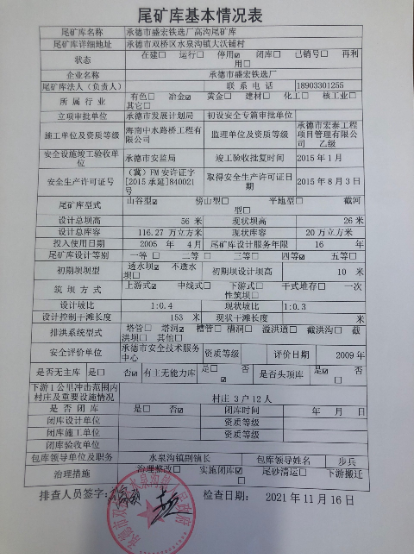 尾矿库基本情况表
尾矿库名称 承德市盛宏铁选厂高沟尾矿库
尾矿库详细地址 承德市双桥区水泉沟镇大沃铺村
状态 在建□ 运行□ 停用☑ 闭库□ 已销号□ 再利用□
企业名称 承德市盛宏铁选厂
尾矿库法人（负责人） 联系电话 18903301255
所属行业 有色□ 冶金☑ 黄金□ 建材□ 化工□ 核工业□
其它□
立项审批单位 承德市发展计划局 初设安全专篇审批单位
施工单位及资质等级 海南中水路桥工程有限公司 监理单位及资质等级 承德市宏泰工程项目管理有限公司 乙级
安全设施竣工验收单位 承德市安监局 竣工验收批复时间 2015年1月
安全生产许可证号 （冀）FM安许证字[2015承延]840021号 取得安全生产许可证日期 2015年8月3日
尾矿库型式 山谷型☑ 傍山型□ 平地型□ 截河型□
设计总坝高 56米 现状坝高 26米
设计总库容 116.27万立方米 现状库容 20万立方米
投入使用日期 2005年4月 尾矿库设计服务年限 16年
尾矿库设计等别 一等□ 二等□ 三等□ 四等☑ 五等□
初期坝坝型 透水坝☑ 不透水坝□ 初期坝设计坝高 10米
筑坝方式 上游式☑ 中线式□ 下游式□ 干式堆存□ 一次性筑坝□
设计坡比 1:0.4 现状坡比 1:0.3
设计控制干滩长度 153米 现状干滩长度 米
排洪系统型式 塔管□ 塔洞☑ 槽管□ 槽洞□ 溢洪道□ 截洪沟□ 截洪坝□ 其他□
安全评价单位 承德市安全技术服务中心 资质等级 评价日期 2009年
是否无主库 是□ 否☑ 有主无能力库 是□ 否☑ 是否头顶库 是☑ 否□
下游1公里冲击范围内村庄及重要设施情况 村庄3户12人
是否闭库 是□ 否☑ 闭库时间 年 月 日
闭库设计单位 资质等级
闭库施工单位 资质等级
闭库验收单位
包库领导单位及职务 水泉沟镇副镇长 包库领导姓名 步兵
治理措施 治理整改□ 实施闭库☑ 尾砂清运□ 下游搬迁□
排查人员签字： 检查日期： 2021年11月16日